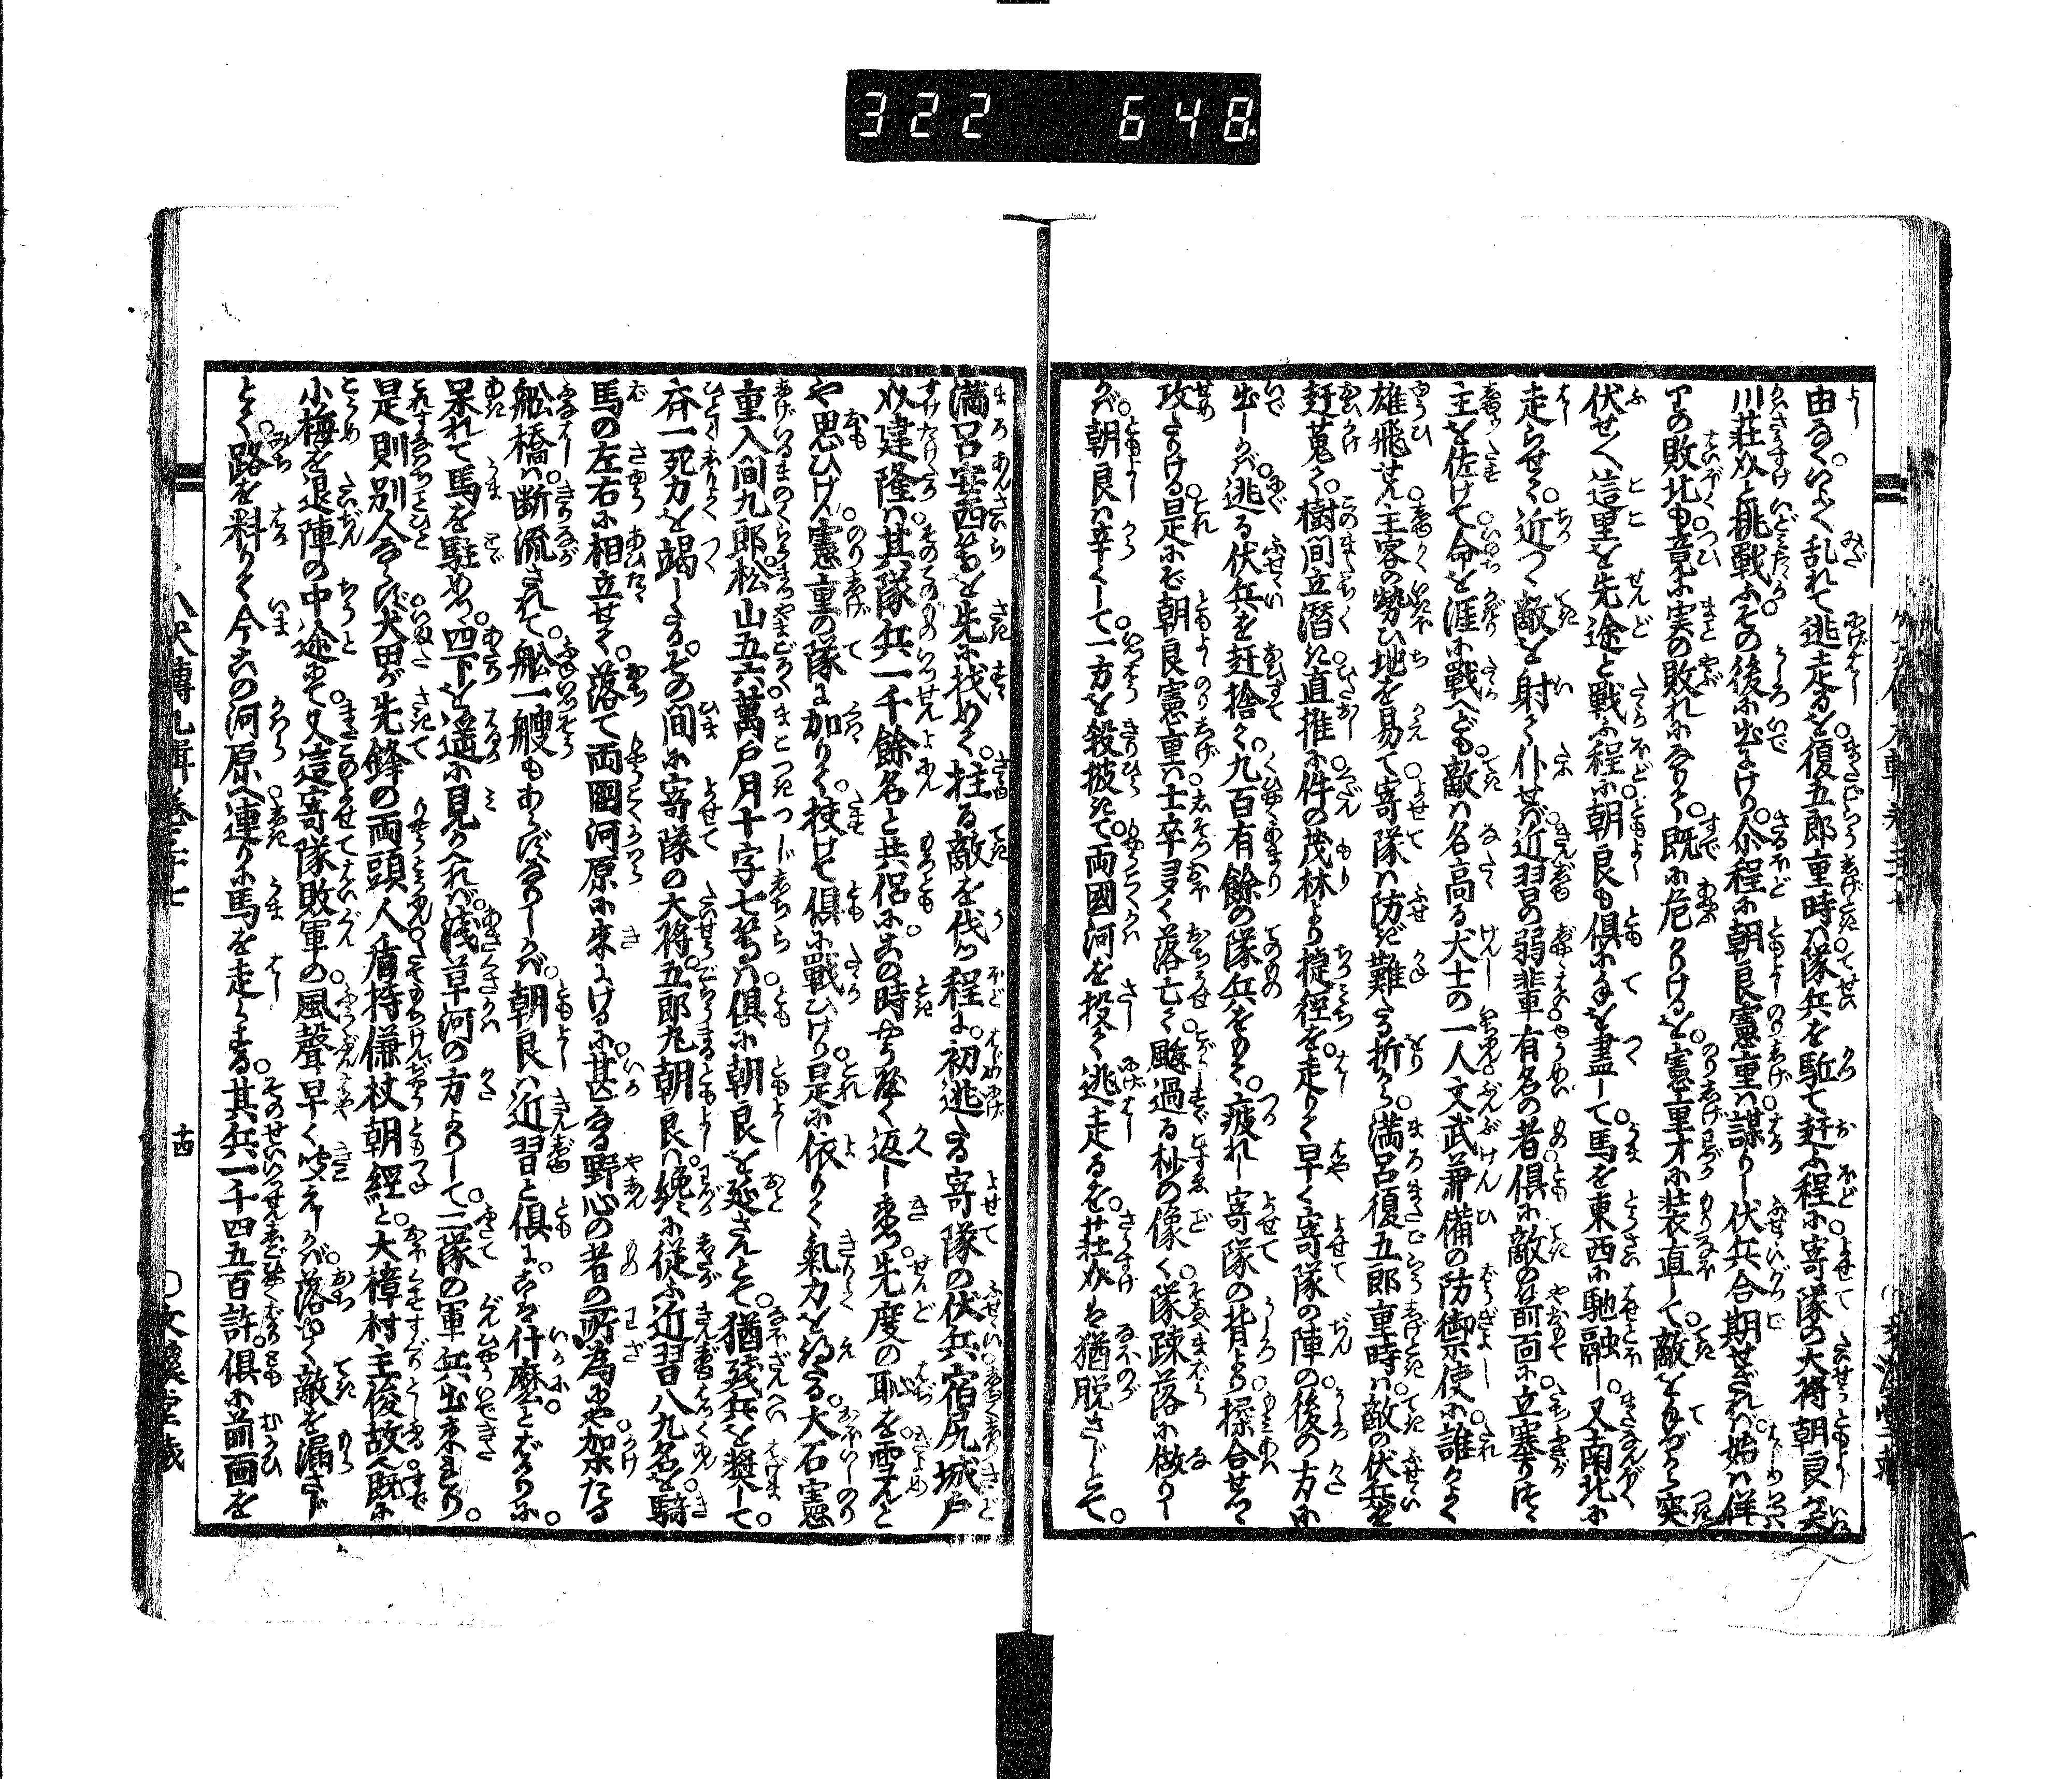 322 648
由なくいよく乱れて逃走るを復五郎重時ハ隊兵を駈て赶ふ程に寄隊の大将朝良が突
川荘介と挑戦ふその後に出にけり尒程に朝良憲重ハ謀りし伏兵合期せざれバ始ハ佯
りの敗北も竟に実の敗れになりて既に危かりけるを憲重才に装直して敵とわづか突
伏せて這里を先途と戦ふ程に朝良も倶に手を盡して馬を東西に馳融し又南北に
走らせて近つく敵を射て仆せバ近習の弱輩有名の者倶に敵の前面に立塞りつゝ
主を佐けて命を涯に戦へども敵ハ名高る犬士の一人文武兼備の防禦使に誰かよく
雄飛せん主客の勢ひ地を易て寄隊ハ防ぎ難たる折から満呂復五郎重時ハ敵の伏兵を
赶蒐て樹間立潜き直推に件の茂林より捷径を走りて早く寄隊の陣の後の方に
出しかバ逃る伏兵を赶捨て九百有餘の隊兵をもて疲れし寄隊の背より操合せて
攻たりける是にぞ朝良憲重ハ士卒多く落亡て颷過る杪の像く隊踈落に做りし
かバ朝良ハ辛くして一方を殺披きて両國河を投て逃走るを荘介ハ猶脱さじとて
満呂安西等を先に找めて拄る敵を伐つ程に初逃たる寄隊の伏兵宿尻城戸
介建隆ハ其隊兵一千餘名と共侶にこの時やう驟く返し来つ先度の恥を雪んと
や思ひけん憲重の隊に加りて扶けて倶に戦ひけり是に依りて氣力を得たる大石憲
重入間九郎松山五六萬戸月十字七等ハ倶に朝良を延さんとて猶残兵を奨して
斉一死力を竭したるその間に寄隊の大将五郎丸朝良ハ纔に従ふ近習八九名を騎
馬の左右に相立せて落て両國河原に来にけるに甚なる野心の者の所為にや架たる
舩橋ハ断流されて舩一艘もあらずなりしかバ朝良ハ近習と倶にこハ什麼とばかりに
呆れて馬を駐めつ四下を遥に見かへれバ浅草河の方よりして二隊の軍兵出来にけり
是則別人ならず犬田が先鋒の両頭人盾持傔杖朝經と大樟村主俊故ハ既に
小梅を退陣の中途にて又這寄隊敗軍の風聲早く聞えしかバ落ゆく敵を漏さじ
とて路を料りて今この河原へ連りに馬を走らする其兵一千四五百許倶に前面を
八犬傳九輯巻三十七
十四
文溪堂蔵